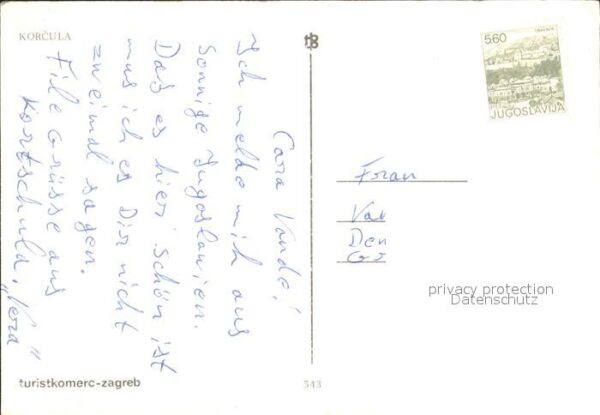 KORČULA
Cara Vanda!
Ich melde mich aus
Sonnige Jugoslawien.
Das es hier schön ist
mus ich es Dir nicht
zweimal sagen.
File Grüsse aus
Kortschula, "Vera"
turistkomerc-zagreb
543
5.60
JUGOSLAVIJA
Fran
Van
Den
privacy protection
Datenschutz